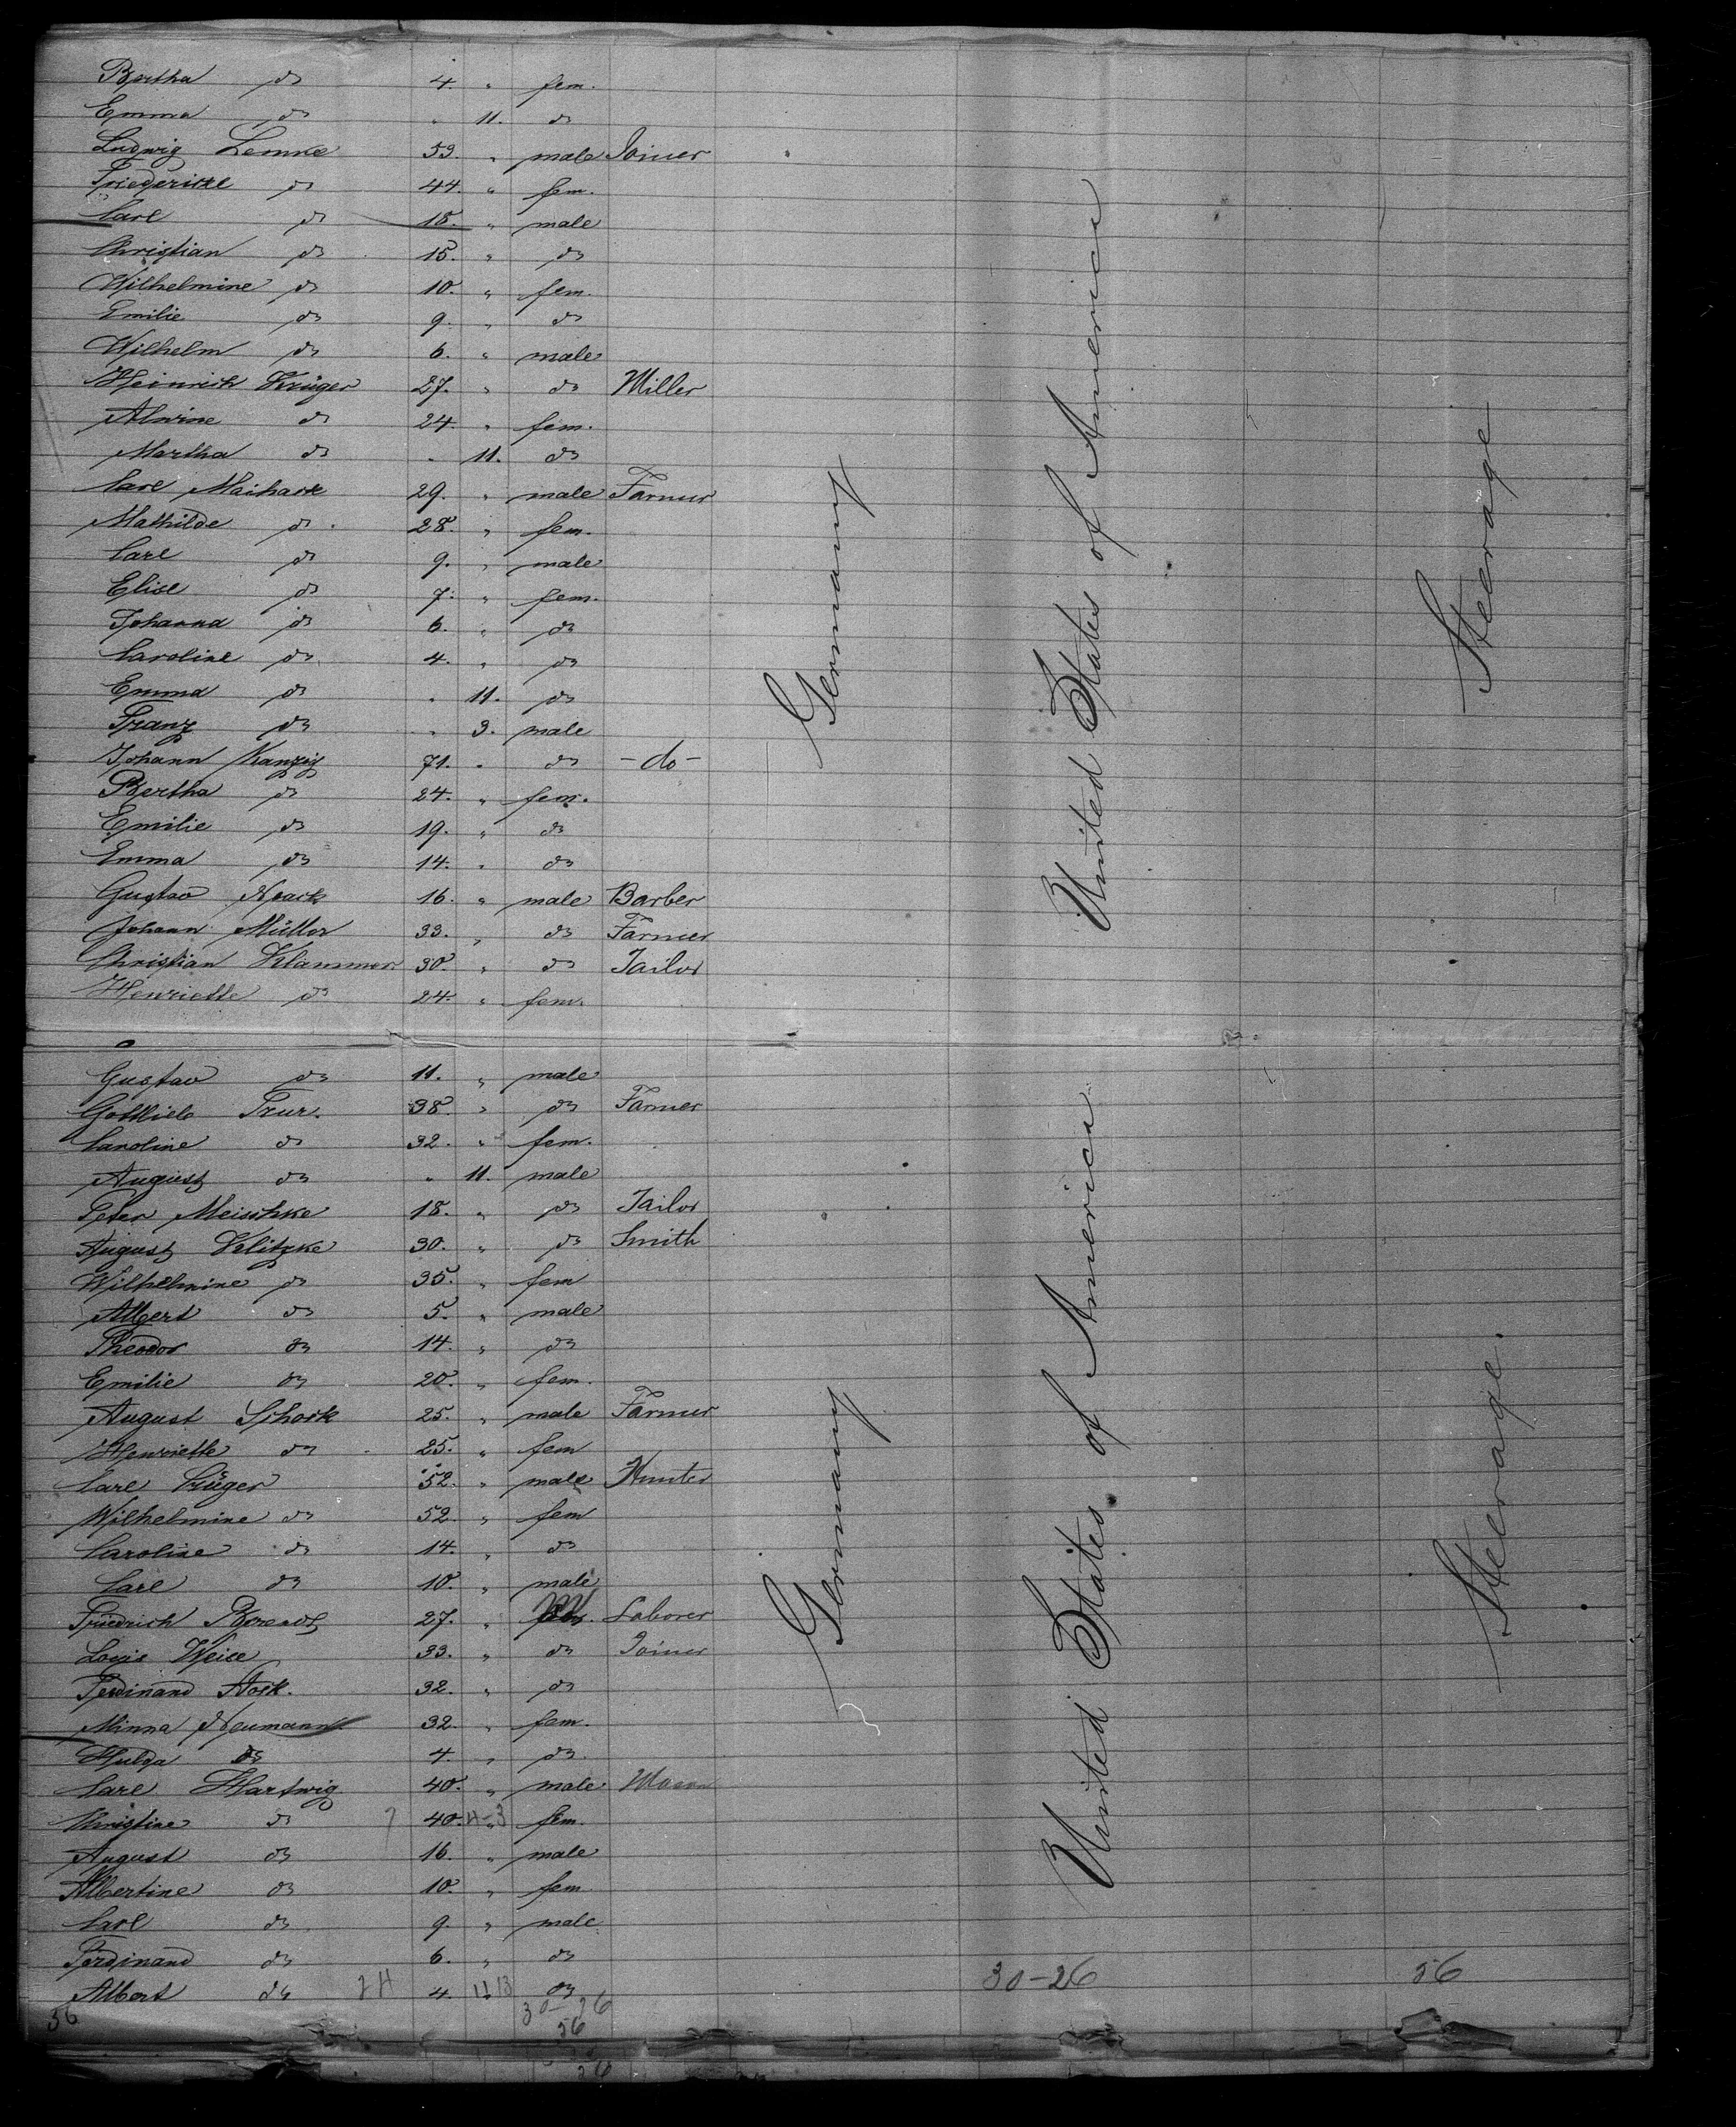 Bertha do 4. " fem.
Emma do " 11. do
Ludwig Lemke 53. " male Joiner
Friedericke do 44. " fem.
Carl do 18. " male
Christian do 15. " do
Wilhelmine do 10. " fem.
Emilie do 9. " do
Wilhelm do 6. " male
Heinrich Krüger 27. " do Miller
Alwine do 24. " fem.
Martha do " 11. do
Carl 29. " male Farmer
Mathilde do 28. " fem.
Carl do 9. " male
Elise do 7. " fem.
Johanna do 6. " do
Caroline do 4. " do
Emma do " 11. do
Franz do " 3. male
Johann Kanzig 71. " do -do-
Bertha do 24. " fem.
Emilie do 19. " do
Emma do 14. " do
Gustav Noack 16. " male Barber
Johann Müller 33. " do Farmer
Christian Klammer 30. " do Tailor
Henriette do 24. " fem.
Gustav do 11. " male
Gottlieb 38. " do Farmer
Caroline do 32. " fem.
August do " 11. male
Peter Meischke 18. " do Tailor
August Klitzke 30. " do Smith
Wilhelmine do 35. " fem
Albert do 5. " male
Theodor do 14. " do
Emilie do 20. " fem.
August Schack 25. " male Farmer
Henriette do 25. " fem
Carl Krüger 52. " male Hunter
Wilhelmine do 52. " fem
Caroline do 14. " do
Carl do 10. " male
Friedrich Berendt 27. " Laborer
Louis Weise 33. " do Joiner
Ferdinand 32. " do
Minna Neumann 32. " fem.
Hulda do 4. " do.
Carl Hartwig 40. " male Mason
Christine do 7 40. 4-3 fem.
August do 16. " male
Albertine do 10. " fem
Carl do 9. " male
Ferdinand do 6. " do
Albert do 24 4. 11 13 do
56
30-26
56
26
Germany
Germany
United States of America
United States of America
30-26
Steerage
Steerage.
56